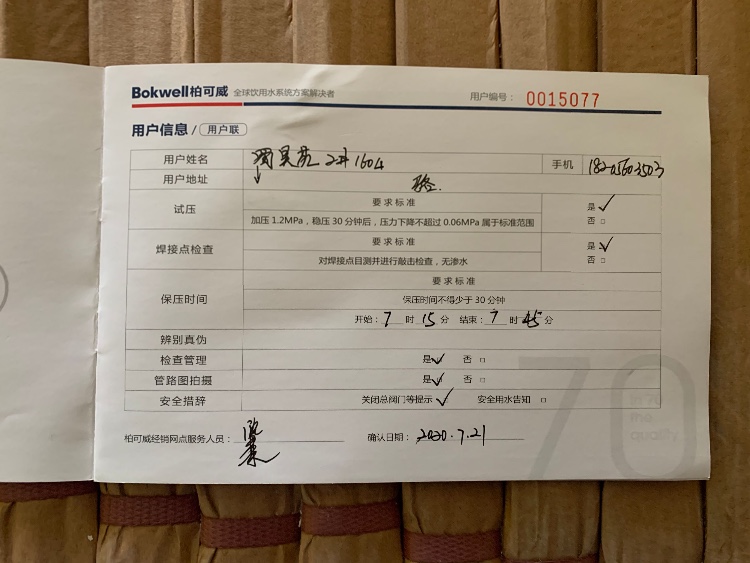 Bokwell柏可威 全球饮用水系统方案解决者 用户编号： 0015077
用户信息 / 用户联
用户姓名 2# 1604 手机
用户地址
试压 要求标准 是 ✓
加压 1.2MPa，稳压 30 分钟后，压力下降不超过 0.06MPa 属于标准范围 否 □
焊接点检查 要求标准 是 ✓
对焊接点目测并进行敲击检查，无渗水 否 □
保压时间 要求标准
保压时间不得少于 30 分钟
开始：7 时 15 分 结束：7 时 45 分
辨别真伪
检查管理 是 ✓ 否 □
管路图拍摄 是 ✓ 否 □
安全措辞 关闭总阀门等提示 ✓ 安全用水告知 □
柏可威经销网点服务人员： 确认日期：2020.7.21
70
the
quality